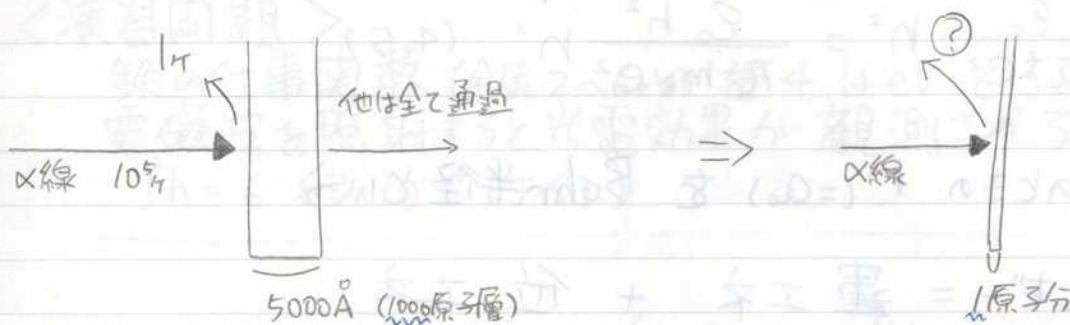 1ケ
?
他は全て通過
⇒
α線 10⁵ケ
α線
5000Å (1000原子層)
1原子分